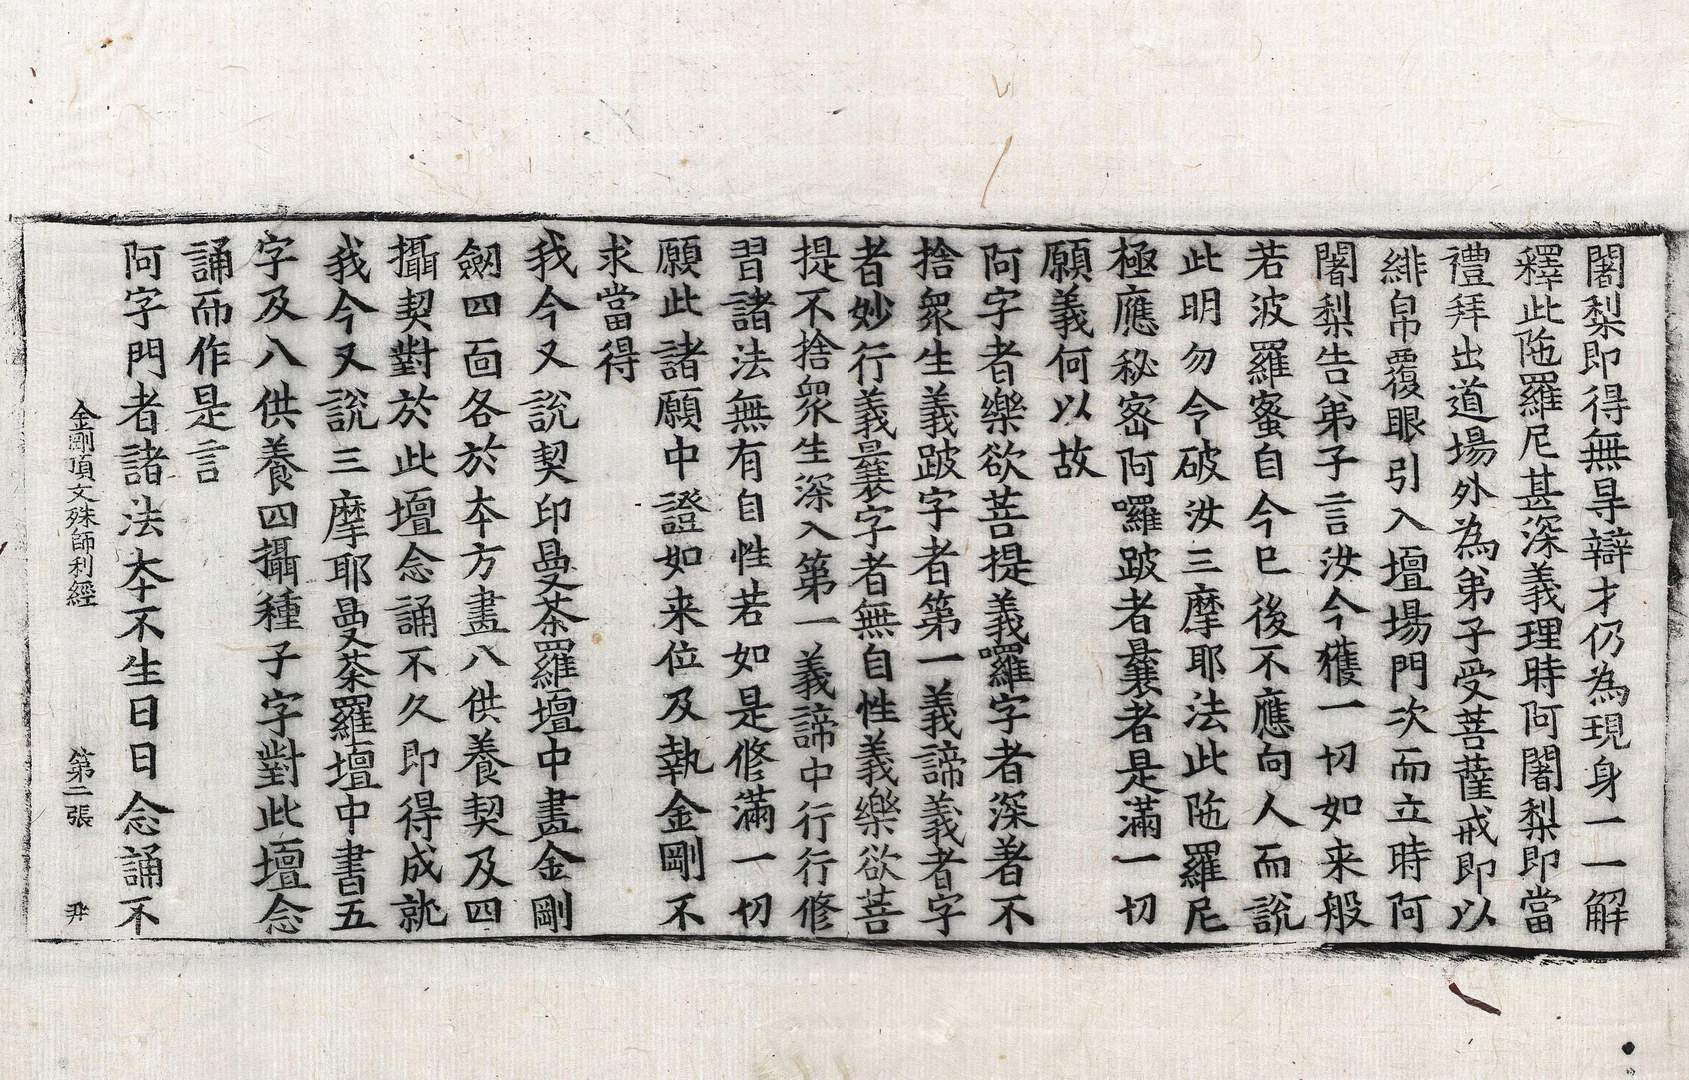 闍梨即得無㝵辯才仍為現身一一解
釋此陁羅尼甚深義理時阿闍梨即當
禮拜出道場外為弟子受菩薩戒即以
緋帛覆眼引入壇場門次而立時阿
闍梨告弟子言汝今獲一切如来般
若波羅蜜自今已後不應向人而說
此明勿令破汝三摩耶法此陁羅尼
極應秘密阿囉跛者曩者是滿一切
願義何以故
阿字者樂欲菩提義囉字者深著不
捨衆生義跛字者第一義諦義者字
者妙行義曩字者無自性義樂欲菩
提不捨衆生深入第一義諦中行行修
習諸法無有自性若如是修滿一切
願此諸願中證如来位及執金剛不
求當得
我今又說契印曼荼羅壇中畫金剛
劒四面各於本方畫八供養契及四
攝契對於此壇念誦不久即得成就
我今又說三摩耶曼荼羅壇中書五
字及八供養四攝種子字對此壇念
誦而作是言
阿字門者諸法本不生日日念誦不
金剛頂文殊師利經 第二張